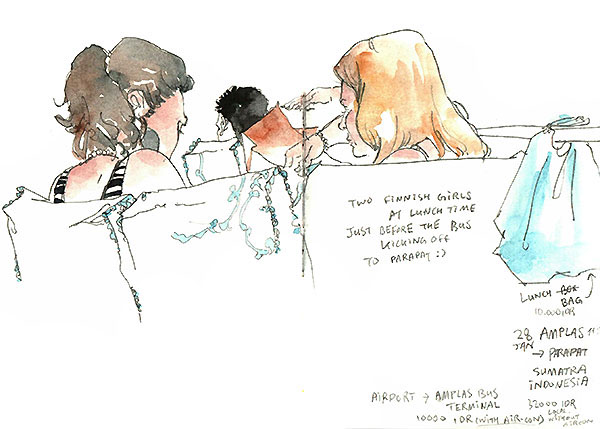 TWO FINNISH GIRLS
AT LUNCH TIME
JUST BEFORE THE BUS
KICKING OFF
TO PARAPAT :)
LUNCH BOX
BAG
10.000 IDR
28 JAN
AMPLAS
→ PARAPAT
SUMATRA
INDONESIA
32000 IDR
LOCAL
WITHOUT
AIRCON
AIRPORT → AMPLAS BUS
TERMINAL
10000 IDR (WITH AIR-CON)